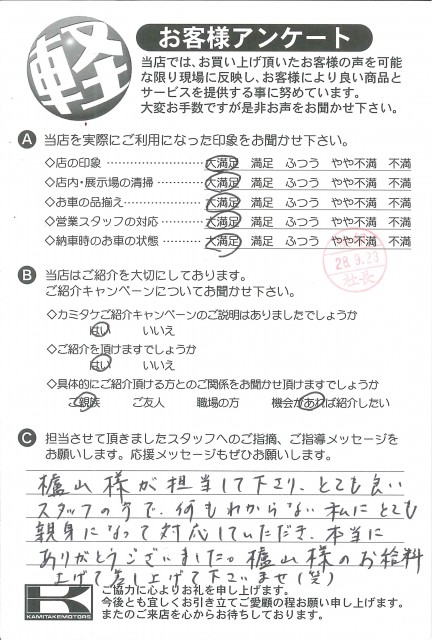 軽
お客様アンケート
当店では、お買い上げ頂いたお客様の声を可能
な限り現場に反映し、お客様により良い商品と
サービスを提供する事に努めています。
大変お手数ですが是非お声をお聞かせ下さい。
A 当店を実際にご利用になった印象をお聞かせ下さい。
◇店の印象 …………………… 大満足 満足 ふつう やや不満 不満
◇店内・展示場の清掃 ………… 大満足 満足 ふつう やや不満 不満
◇お車の品揃え ……………… 大満足 満足 ふつう やや不満 不満
◇営業スタッフの対応 ………… 大満足 満足 ふつう やや不満 不満
◇納車時のお車の状態 ………… 大満足 満足 ふつう やや不満 不満
28.9.23
社長
B 当店はご紹介を大切にしております。
ご紹介キャンペーンについてお聞かせ下さい。
◇カミタケご紹介キャンペーンのご説明はありましたでしょうか
はい いいえ
◇ご紹介を頂けますでしょうか
はい いいえ
◇具体的にご紹介頂ける方とのご関係をお聞かせ頂けますでしょうか
ご親族 ご友人 職場の方 機会があれば紹介したい
C 担当させて頂きましたスタッフへのご指摘、ご指導メッセージを
お願いします。応援メッセージもぜひお願いします。
櫨山様が担当して下さり、とても良い
スタッフの方で、何もわからない私にとても
親身になって対応していただき、本当に
ありがとうございました。櫨山様のお給料
上げて差し上げて下さいませ(笑)
K
KAMITAKEMOTORS
ご協力に心よりお礼を申し上げます。
今後とも宜しくお引き立てご愛顧の程お願い申し上げます。
またのご来店を心からお待ちしております。